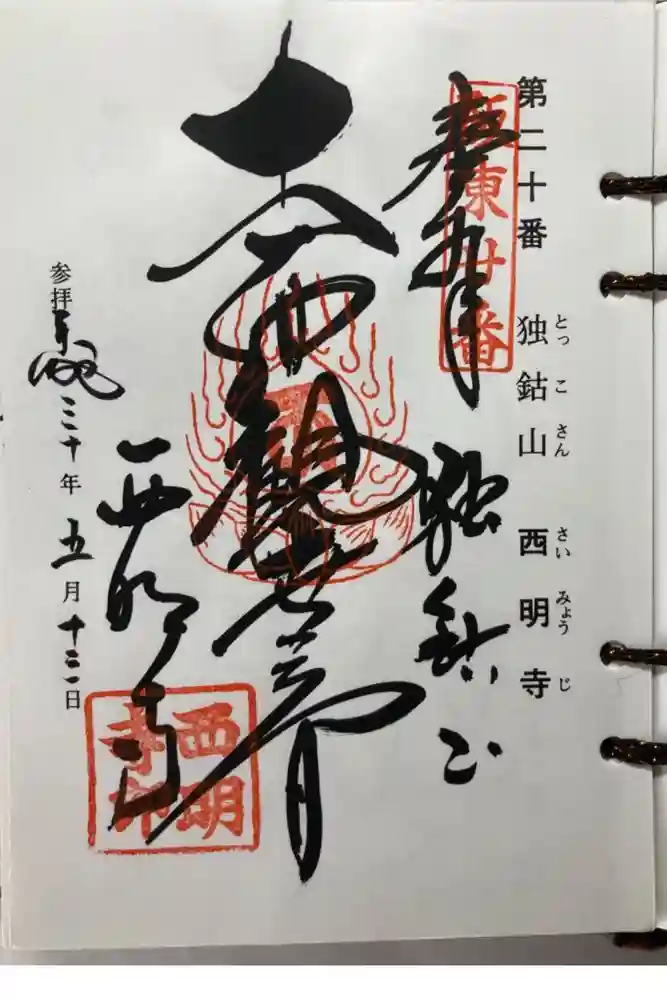 第二十番 独鈷山 西明寺
とっ こ さん さい みょう じ
坂東廿番
奉拝
独鈷山
十一面観世音
西明寺
西明寺印
参拝 平成三十年五月十三日